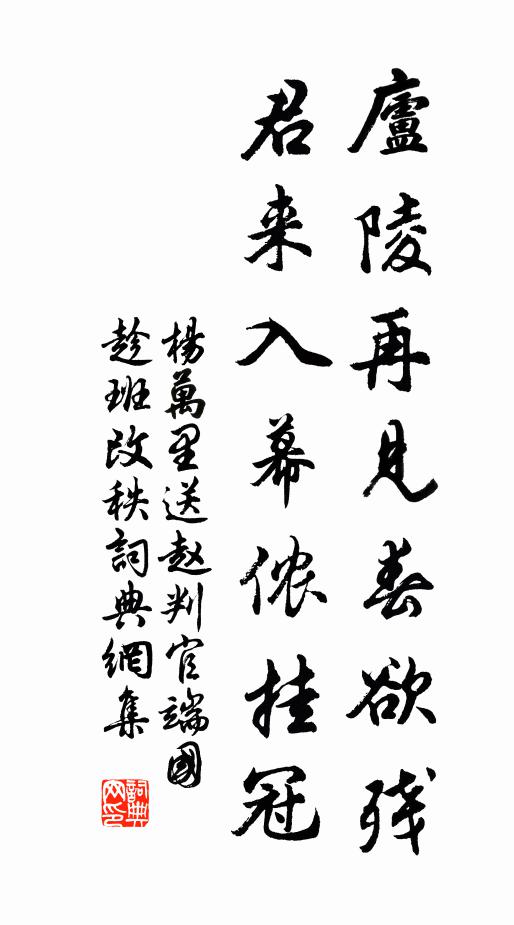 廬陵再見春欲残
君来入幕侬挂冠
楊萬里送赵判官端國
趁班改秩詞典網集
詞典网印